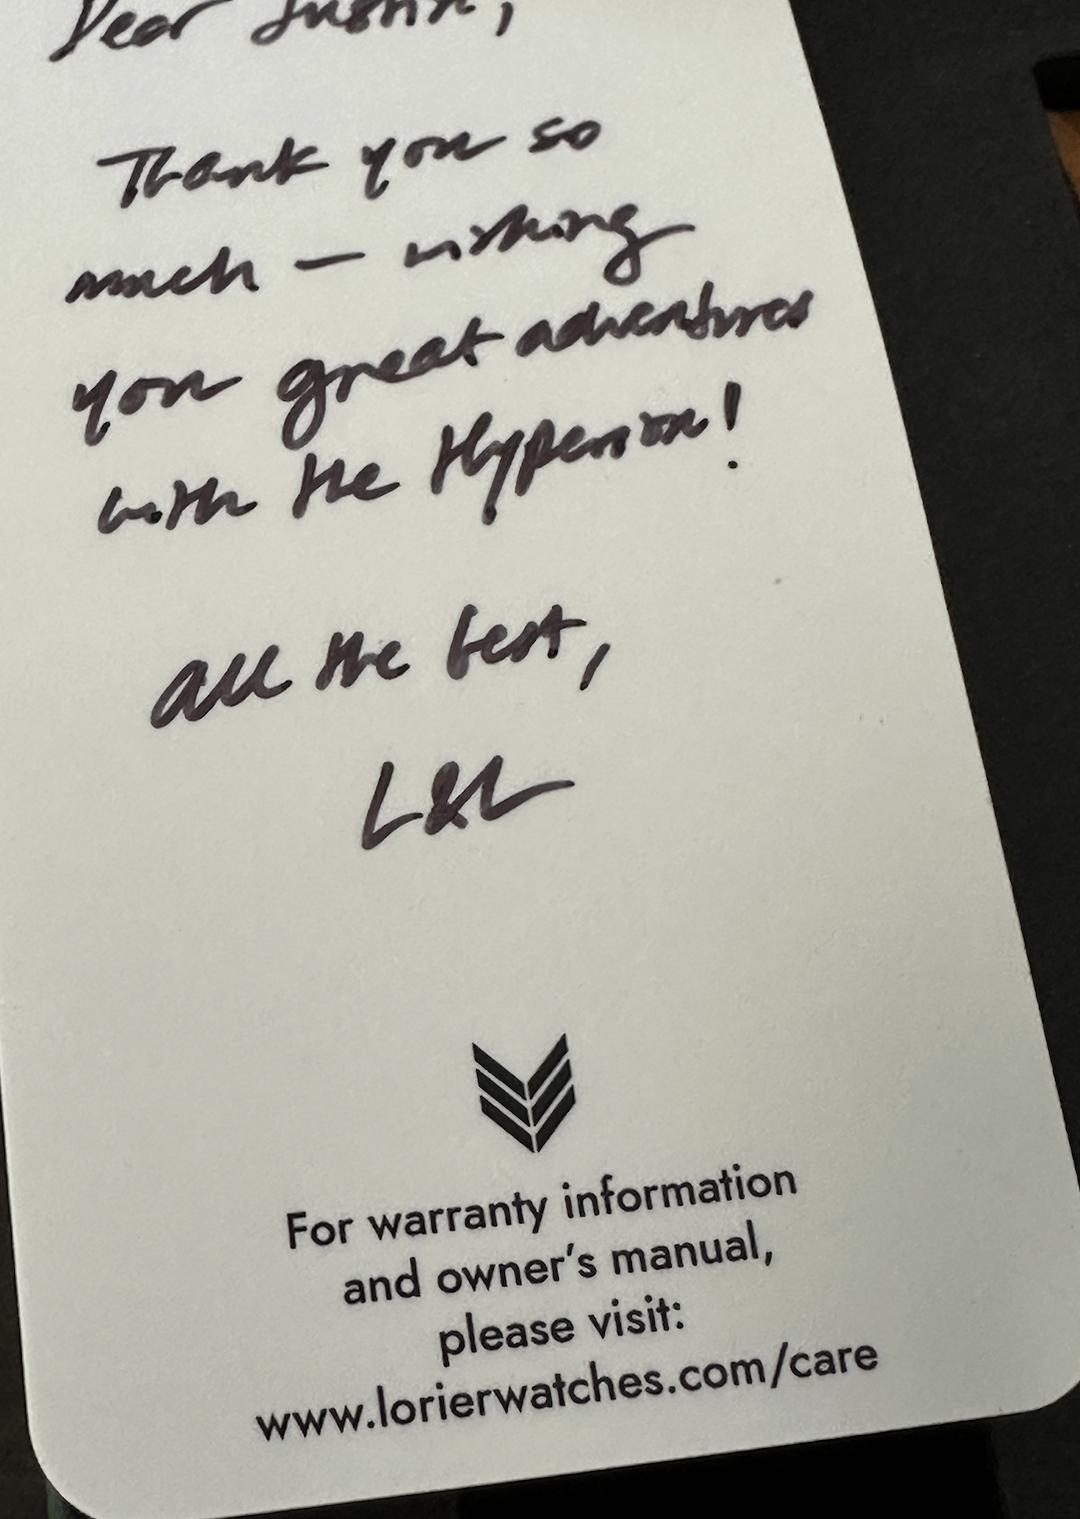 Dear Justin,
Thank you so
much — wishing
you great adventures
with the Hyperion!
all the best,
L&L
For warranty information
and owner's manual,
please visit:
www.lorierwatches.com/care